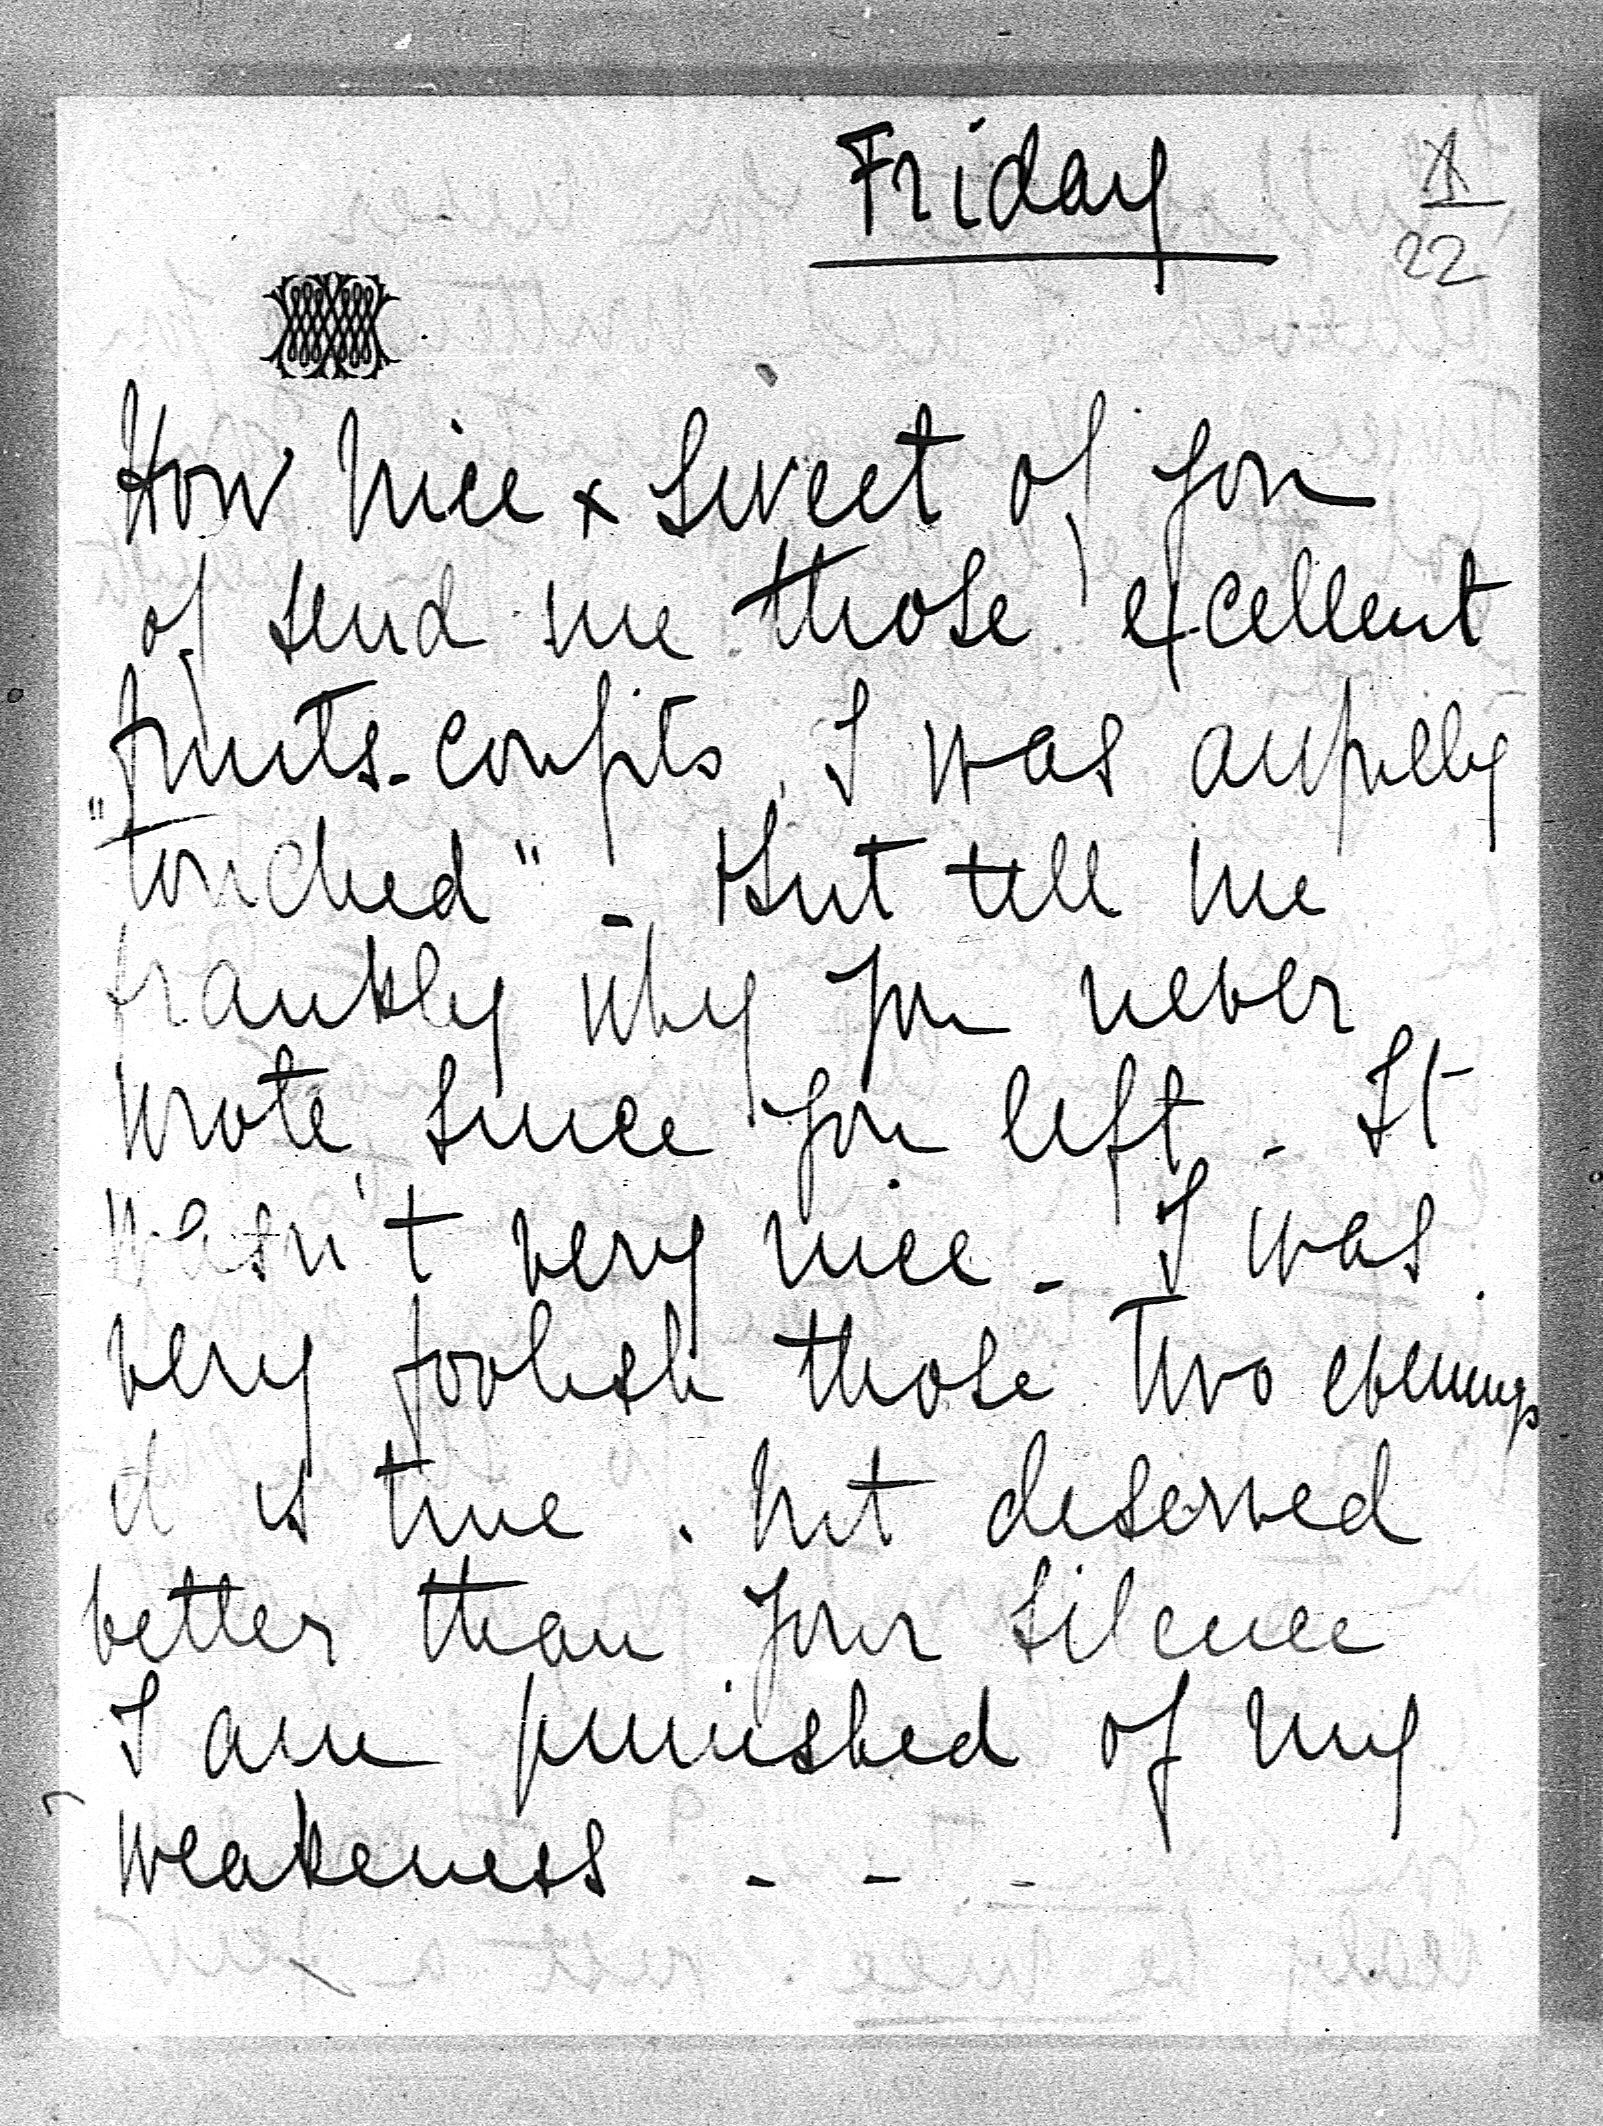 Friday
X
22
How nice & sweet of you
of send me those excellent
fruits-confits. I was awfully
"touched" - But tell me
frankly why you never
wrote since you left - It
wasn't very nice - I was
very foolish those two evenings
it is true. but deserved
better than your silence
I am punished of my
weakeness - - -